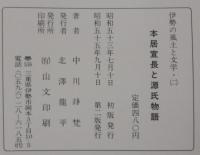 伊勢の風土と文学・(二)
本居宣長と源氏物語
定価四八〇円
昭和五十三年七月十日 初版発行
昭和五十五年九月十日 第二版発行
著者 中川 竫梵
発行者 北澤龍平
印刷所 ㈲山文印刷
発行所
三重県伊勢市岡本3丁目
電話